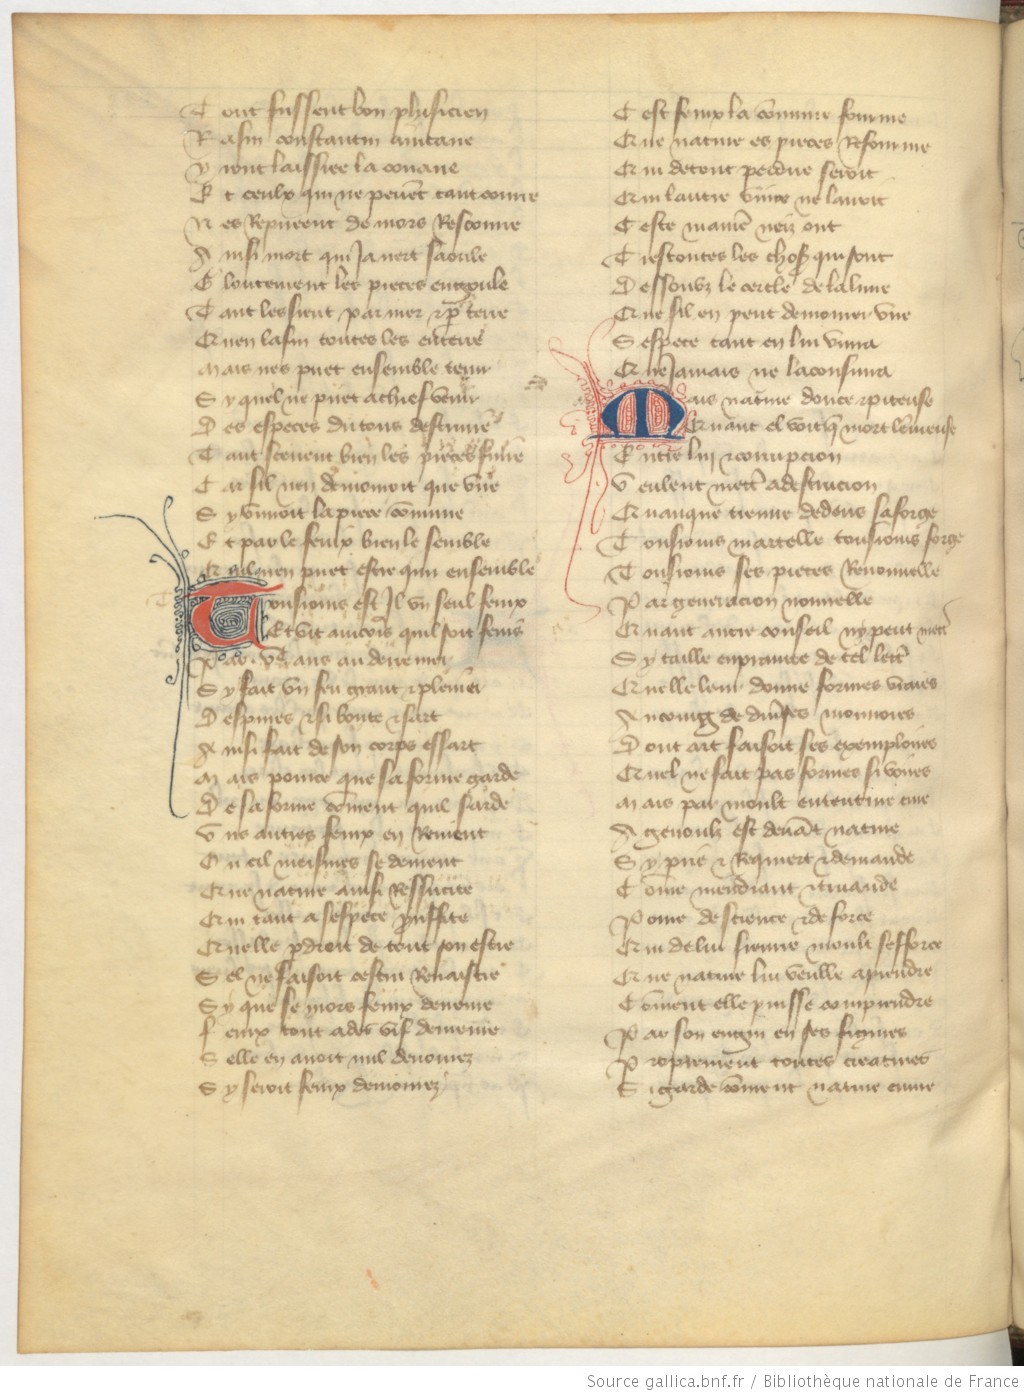 Tout fussent bon phisicien
Rasin constantin auicane
Y iont laissiee la couane
Et ceulx qui ne peuēt tant courre
Nes Repueent de mors Rescourre
Ainsi mort qui Ja nert saoule
Gloutement les pieces engoule
Tant les sieut par mer et p̄ terre
Quen la fin toutes les enterre
Mais nes puet ensemble tenir
Sy quel ne puet a chief venir
Des especes du tous destruire
Tant sceuent bien les pieces fuire
Car sil nen demomoit que vne
Sy viuroit la piece cōmune
Et par le fenix bien le semble
Quil nen puet estre qun ensemble
Tousiours est Il vn seul fenix
Et vit aincois quil soit fenis
Par .vc. ans au derrenier
Sy fait vn feu grant et plenier
Despines et si boute et sart
Ainsi fait de son corps essart
Mais pource que sa forme garde
De sa forme cōment quil sarde
Vns autres fenix en Reuient
Ou cil meismes se deuient
Que nature ainsi Ressucite
Qui tant a sespece prouffite
Quelle p̄droit de tout son estre
Sel ne faisoit cestui Renaistre
Sy que se mors fenix deueure
Fenix tout ades vif demeure
Selle en auoit mil deuourez
Sy seroit fenix demourez
Cest fenix la cōmune fourme
Que nature es pieces Refourme
Qui de tout perdue seroit
Qui lautre viure ne lairoit
Ceste maniere neiz ont
Trestoutes les choses qui sont
Dessoubz le cercle de la lune
Que sil en peut demourer vne
Sespece tant en lui viura
Que Jamais ne laconsiura
Mais nature douce et piteuse
Quant el voit que mort lenuieuse
Entre lui et corrupcion
Veulent mettre a destrucion
Quanque treuue dedens sa forge
Tousiours martelle tousiours forge
Tousiours ses pieces Renouuelle
Par generacion nouuelle
Quant autre conseil ny peut mettre
Sy taille emprainte de tel lettre
Quelle leur donne formes vraies
En coings de diuerses monnoies
Dont art faisoit ses exemploires
Quel ne fait pas formes si voires
Mais par moult ententiue cure
A genoulz est deuāt nature
Sy prie et Requiert et demande
Cōme mendiant et truande
Poure de science et de force
Qui de lui sieuure moult sefforce
Que nature lui vueille aprendre
Cōment elle puisse comprendre
Par son engin en ses figures
Proprement toutes creatures
Si garde cōment nature euure
Source gallica.bnf.fr / Bibliothèque nationale de France